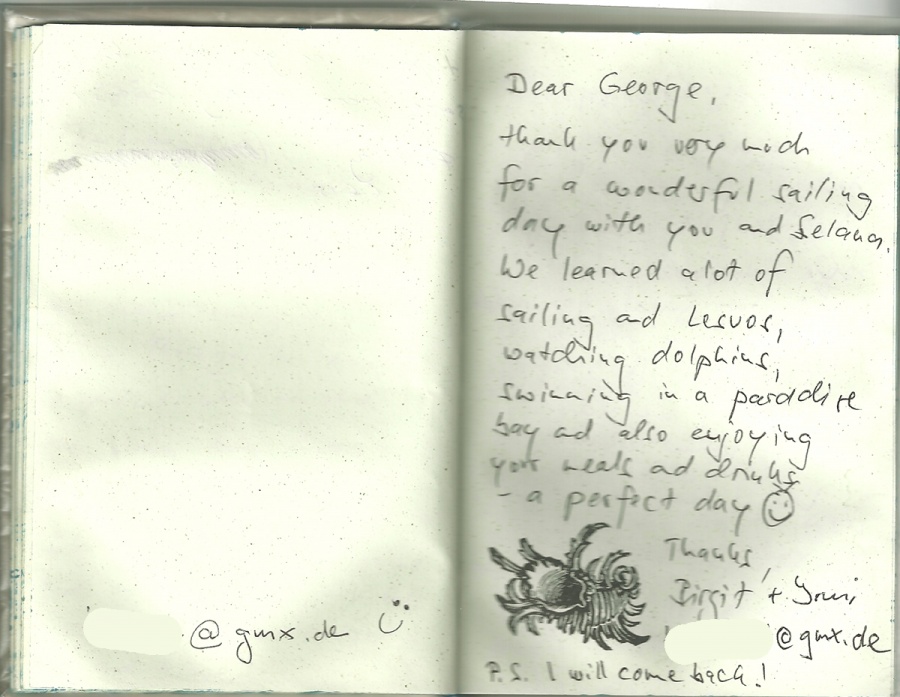 @gmx.de
Dear George,
thank you very much
for a wonderful sailing
day with you and Selana.
We learned a lot of
sailing and Lesvos,
watching dolphins,
swimming in a paradise
bay and also enjoying
your meals and drinks
- a perfect day ☺
Thanks,
Birgit +
@gmx.de
P.S. I will come back!